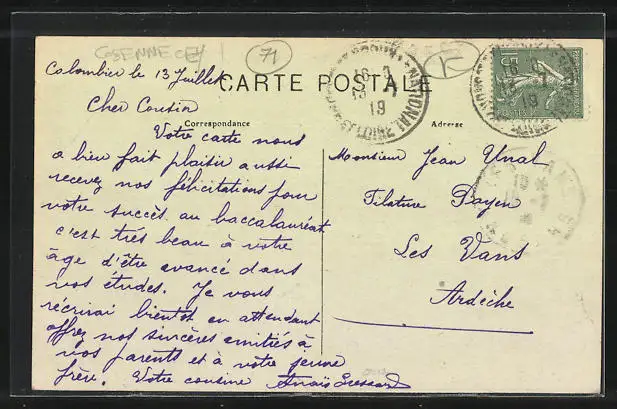 71
Colombier le 13 Juillet
CARTE POSTALE
Correspondance
Adresse
Cher Cousin
Votre carte nous
a bien fait plaisir aussi
recevez nos félicitations pour
votre succès au baccalauréat
c'est très beau à votre
âge d'être avancé dans
vos études. Je vous
écrirai bientôt en attendant
offrez nos sincères amitiés à
vos parents et à votre jeune
frère. Votre cousine Anaïs
Monsieur Jean Unal
Filature Payen
Les Vans
Ardèche
15
19
19